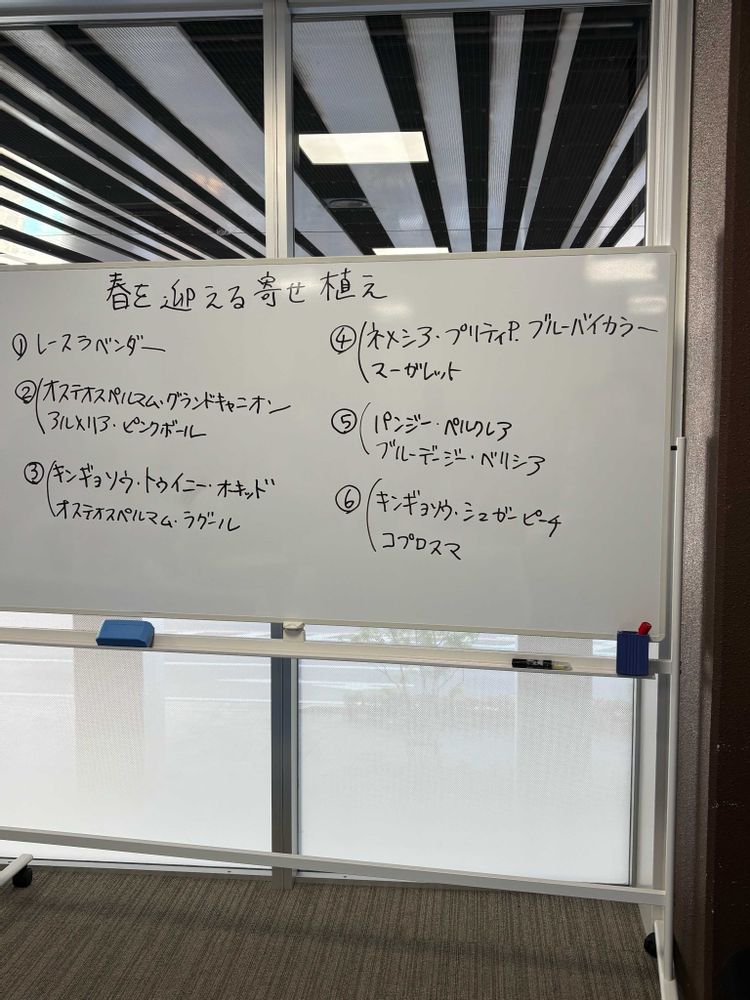 春を迎える寄せ植え
① レースラベンダー
② オステオスペルマム・グランドキャニオン
アルメリア・ピンクボール
③ キンギョソウ・トゥイニー・オキッド
オステオスペルマム・ラグール
④ ネメシア・プリティP. ブルーバイカラー
マーガレット
⑤ パンジー・ペルクレア
ブルーデージー・ベリシア
⑥ キンギョソウ・シュガーピーチ
コプロスマ